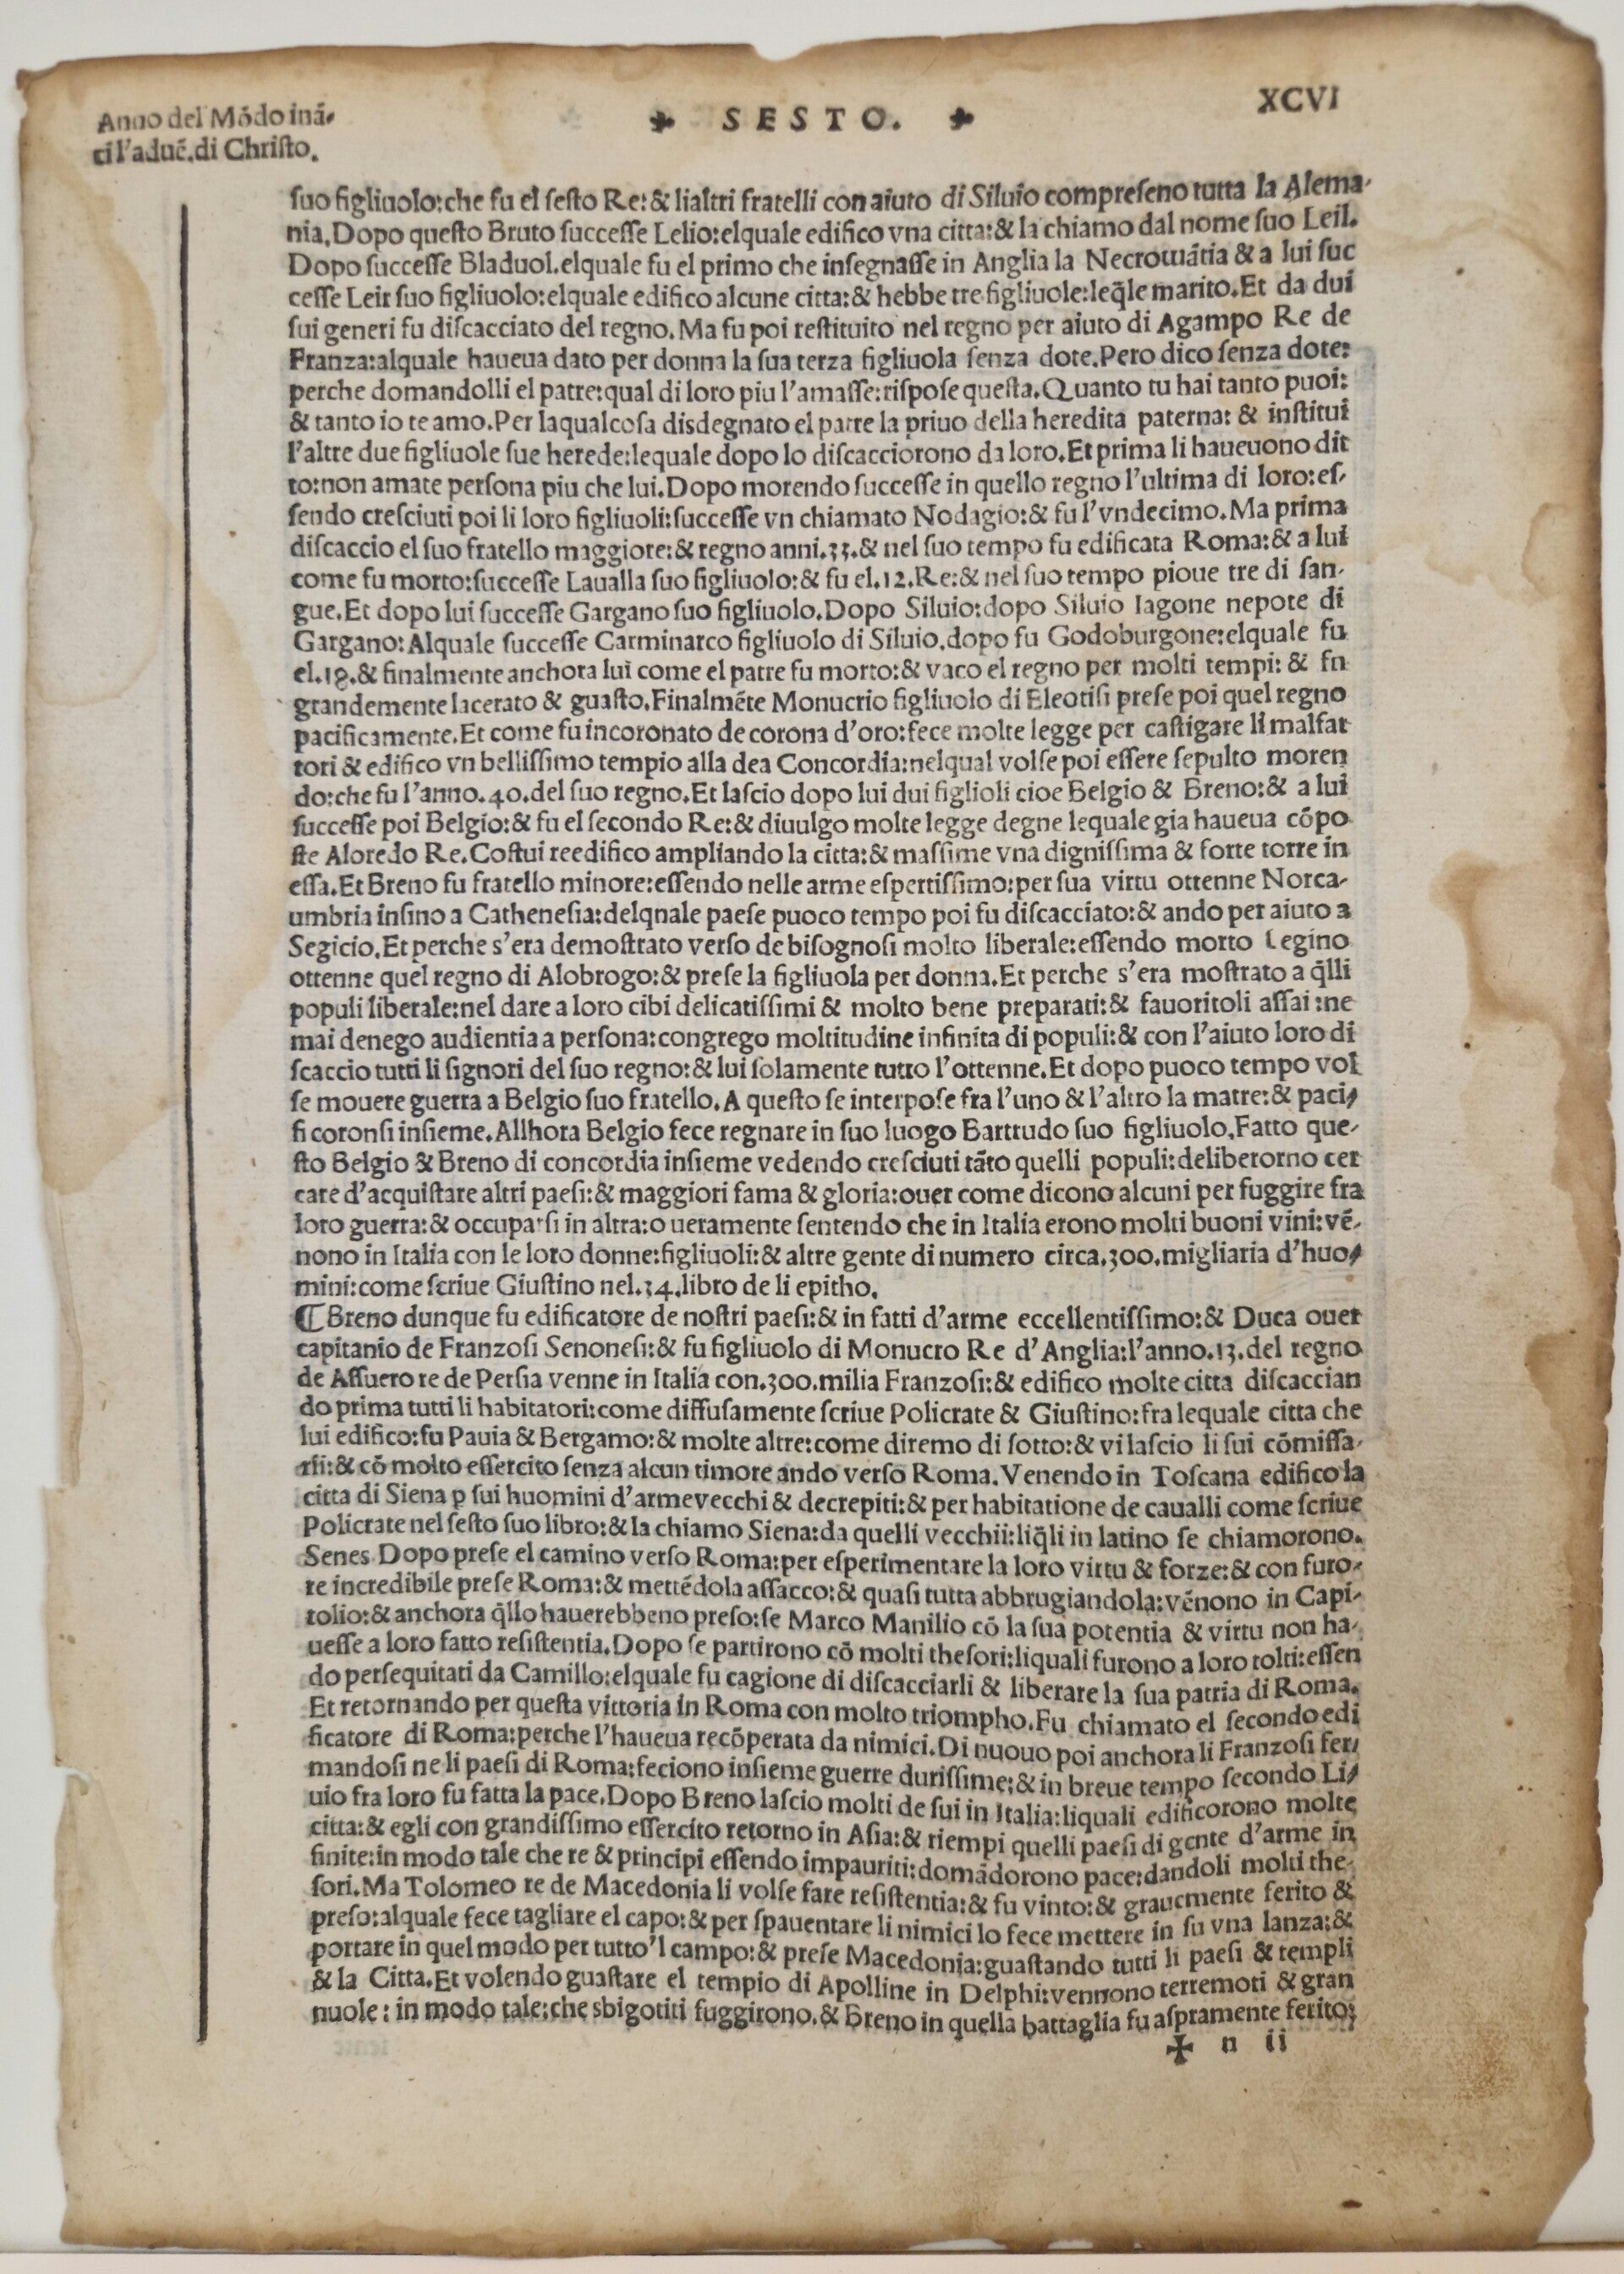 Anno del Mōdo inā-
ci l'aduē.di Christo.
✤ SESTO. ✤
XCVI
suo figliuolo:che fu el sesto Re:& lialtri fratelli con aiuto di Siluio compreseno tutta la Alema-
nia.Dopo questo Bruto successe Lelio:elquale edifico vna citta:& la chiamo dal nome suo Leil.
Dopo successe Bladuol.elquale fu el primo che insegnasse in Anglia la Necromātia & a lui suc
cesse Leir suo figliuolo:elquale edifico alcune citta:& hebbe tre figliuole:leq̄le marito.Et da dui
sui generi fu discacciato del regno.Ma fu poi restituito nel regno per aiuto di Agampo Re de
Franza:alquale haueua dato per donna la sua terza figliuola senza dote.Pero dico senza dote:
perche domandolli el patre:qual di loro piu l'amasse:rispose questa.Quanto tu hai tanto puoi:
& tanto io te amo.Per laqualcosa disdegnato el patre la priuo della heredita paterna: & institui
l'altre due figliuole sue herede:lequale dopo lo discacciorono da loro.Et prima li haueuono dit
to:non amate persona piu che lui.Dopo morendo successe in quello regno l'ultima di loro:es-
sendo cresciuti poi li loro figliuoli:successe vn chiamato Nodagio:& fu l'vndecimo.Ma prima
discaccio el suo fratello maggiore:& regno anni.33.& nel suo tempo fu edificata Roma:& a lui
come fu morto:successe Laualla suo figliuolo:& fu el.12.Re:& nel suo tempo pioue tre di san-
gue.Et dopo lui successe Gargano suo figliuolo.Dopo Siluio:dopo Siluio Iagone nepote di
Gargano:Alquale successe Carminarco figliuolo di Siluio.dopo fu Godoburgone:elquale fu
el.18.& finalmente anchora lui come el patre fu morto:& vaco el regno per molti tempi: & fu
grandemente lacerato & guasto.Finalmēte Monucrio figliuolo di Eleotisi prese poi quel regno
pacificamente.Et come fu incoronato de corona d'oro:fece molte legge per castigare li malfat
tori & edifico vn bellissimo tempio alla dea Concordia:nelqual volse poi essere sepulto moren
do:che fu l'anno.40.del suo regno.Et lascio dopo lui dui figlioli cioe Belgio & Breno:& a lui
successe poi Belgio:& fu el secondo Re:& diuulgo molte legge degne lequale gia haueua cōpo
ste Aloredo Re.Costui reedifico ampliando la citta:& massime vna dignissima & forte torre in
essa.Et Breno fu fratello minore:essendo nelle arme espertissimo:per sua virtu ottenne Norca-
umbria insino a Cathenesia:delqnale paese puoco tempo poi fu discacciato:& ando per aiuto a
Segicio.Et perche s'era demostrato verso de bisognosi molto liberale:essendo morto Legino
ottenne quel regno di Alobrogo:& prese la figliuola per donna.Et perche s'era mostrato a q̄lli
populi liberale:nel dare a loro cibi delicatissimi & molto bene preparati:& fauoritoli assai:ne
mai denego audientia a persona:congrego moltitudine infinita di populi:& con l'aiuto loro di
scaccio tutti li signori del suo regno:& lui solamente tutto l'ottenne.Et dopo puoco tempo vol
se mouere guerra a Belgio suo fratello.A questo se interpose fra l'uno & l'altro la matre:& paci-
fi coronsi insieme.Allhora Belgio fece regnare in suo luogo Bartrudo suo figliuolo.Fatto que-
sto Belgio & Breno di concordia insieme vedendo cresciuti tāto quelli populi:deliberorno cer
care d'acquistare altri paesi:& maggiori fama & gloria:ouer come dicono alcuni per fuggire fra
loro guerra:& occuparsi in altra:o ueramente sentendo che in Italia erono molti buoni vini:vē-
nono in Italia con le loro donne:figliuoli:& altre gente di numero circa.300.migliaria d'huo-
mini:come scriue Giustino nel.34.libro de li epitho.
¶ Breno dunque fu edificatore de nostri paesi:& in fatti d'arme eccellentissimo:& Duca ouer
capitanio de Franzosi Senonesi:& fu figliuolo di Monucro Re d'Anglia:l'anno.13.del regno
de Assuero re de Persia venne in Italia con.300.milia Franzosi:& edifico molte citta discaccian
do prima tutti li habitatori:come diffusamente scriue Policrate & Giustino:fra lequale citta che
lui edifico:fu Pauia & Bergamo:& molte altre:come diremo di sotto:& vi lascio li sui cōmissa-
rii:& cō molto essercito senza alcun timore ando verso Roma.Venendo in Toscana edifico la
citta di Siena p sui huomini d'arme vecchi & decrepiti:& per habitatione de caualli come scriue
Policrate nel sesto suo libro:& la chiamo Siena:da quelli vecchii:liq̄li in latino se chiamorono.
Senes Dopo prese el camino verso Roma:per esperimentare la loro virtu & forze:& con furo-
re incredibile prese Roma:& mettēdola assacco:& quasi tutta abbrugiandola:vēnono in Capi-
tolio:& anchora q̄llo hauerebbeno preso:se Marco Manilio cō la sua potentia & virtu non ha-
uesse a loro fatto resistentia.Dopo se partirono cō molti thesori:liquali furono a loro tolti:essen
do persequitati da Camillo:elquale fu cagione di discacciarli & liberare la sua patria di Roma.
Et retornando per questa vittoria in Roma con molto triompho.Fu chiamato el secondo edi
ficatore di Roma:perche l'haueua recōperata da nimici.Di nuouo poi anchora li Franzosi fer-
mandosi ne li paesi di Roma:feciono insieme guerre durissime:& in breue tempo secondo Li-
uio fra loro fu fatta la pace.Dopo Breno lascio molti de sui in Italia:liquali edificorono molte
citta:& egli con grandissimo essercito retorno in Asia:& riempi quelli paesi di gente d'arme in
finite:in modo tale che re & principi essendo impauriti:domādorono pace:dandoli molti the-
sori.Ma Tolomeo re de Macedonia li volse fare resistentia:& fu vinto:& grauemente ferito &
preso:alquale fece tagliare el capo:& per spauentare li nimici lo fece mettere in su vna lanza:&
portare in quel modo per tutto'l campo:& prese Macedonia:guastando tutti li paesi & templi
& la Citta.Et volendo guastare el tempio di Apolline in Delphi:vennono terremoti & gran
nuole: in modo tale:che sbigotiti fuggirono.& Breno in quella battaglia fu aspramente ferito:
✠ n ii